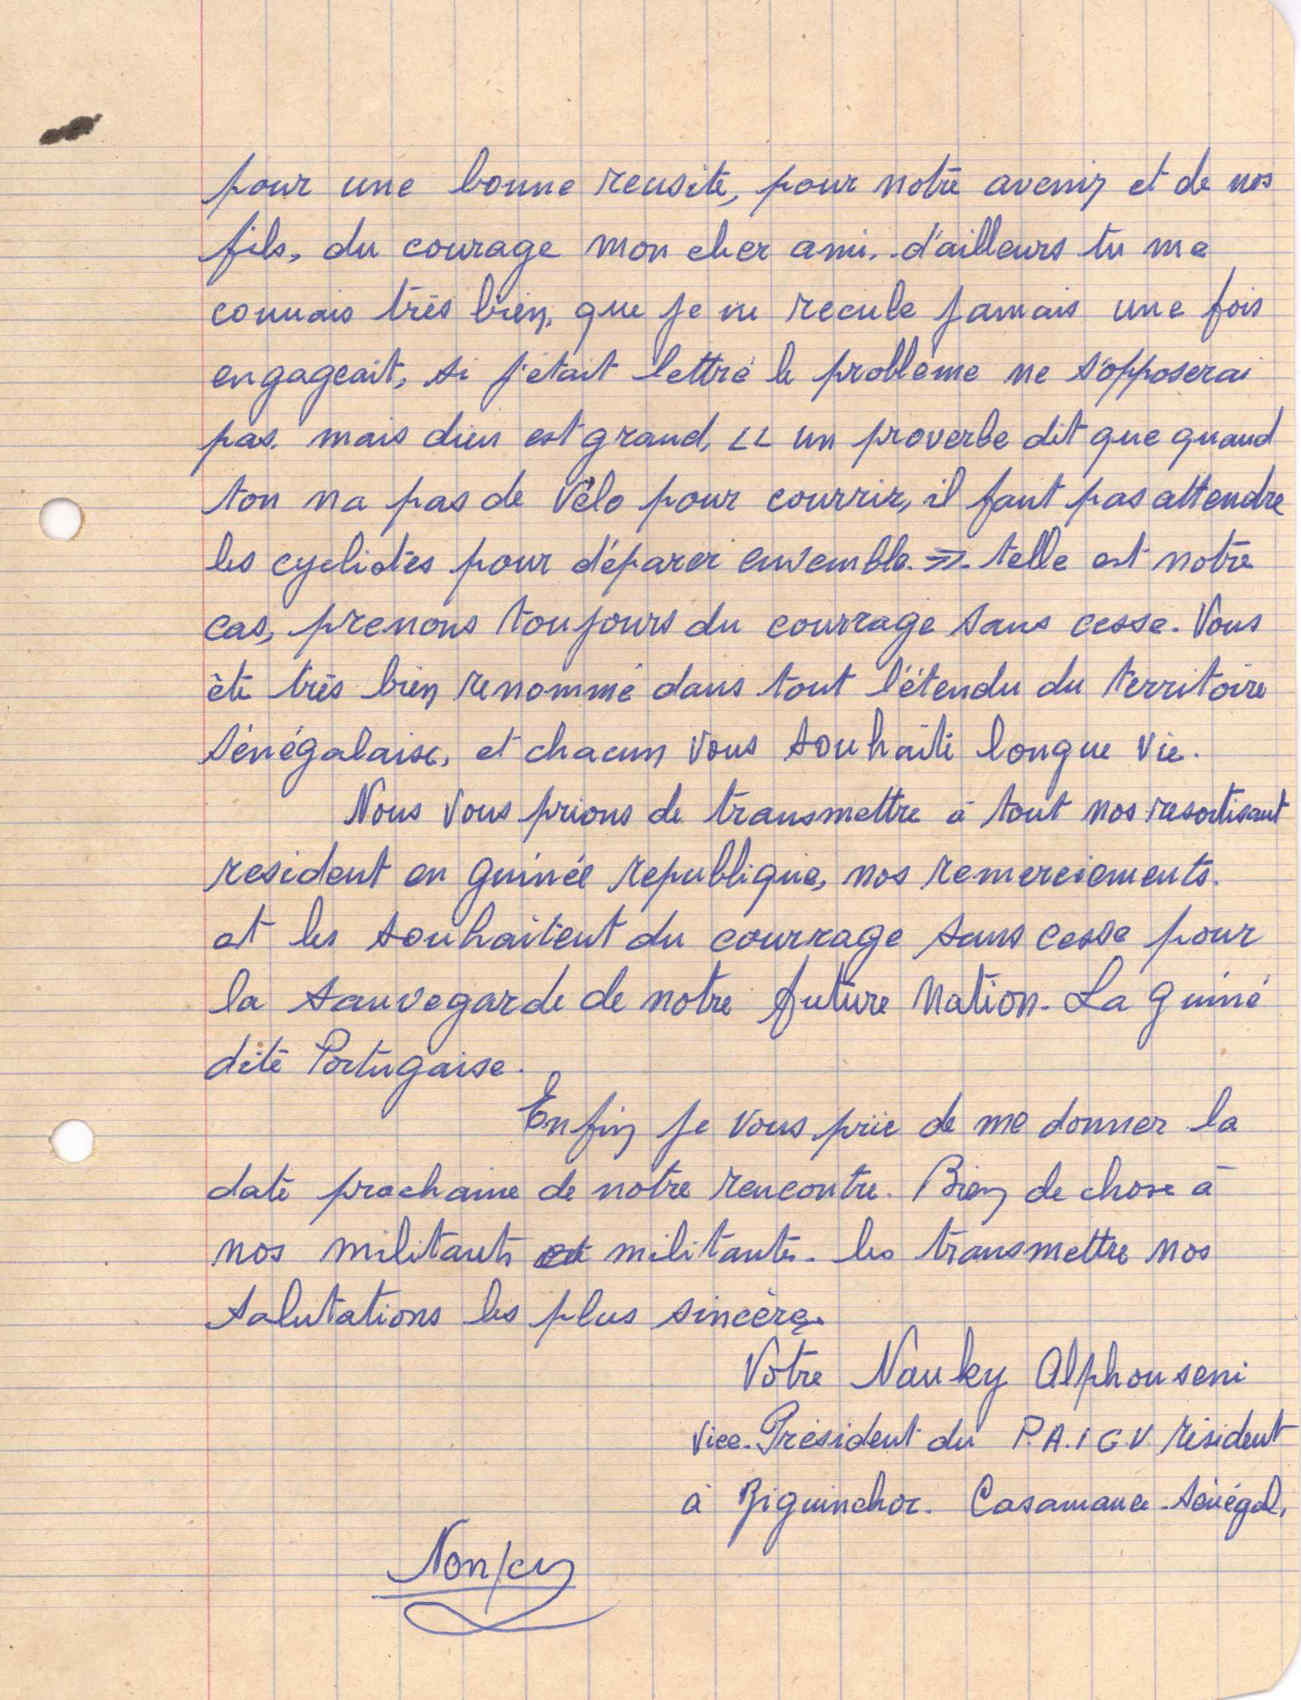 pour une bonne reusite, pour notre avenir et de nos
fils, du courage mon cher ami. d'ailleurs tu me
connais très bien, que je ne recule jamais une fois
engageait, si j'était lettré le problème ne s'opposerai
pas. mais dieu est grand, << un proverbe dit que quand
ton na pas de vélo pour courrir, il faut pas attendre
les cyclistes pour déparer ensemble. >> telle est notre
cas, prenons toujours du courrage sans cesse. Vous
ète très bien renommé dans tout l'étendu du territoire
Sénégalaise, et chacun vous souhaite longue vie.
Nous vous prions de transmettre à tout nos resortisant
resident en guinée republique, nos remerciements.
et les souhaitent du courrage sans cesse pour
la sauvegarde de notre future Nation. La guiné
dite Portugaise.
Enfin je vous prie de me donner la
date prochaine de notre rencontre. Bien de chose à
nos militants et militantes. les transmettre nos
salutations les plus sincères.
Votre Nanky Alphouseni
Vice-Président du P.A.I G V résident
à Ziguinchor. Casamance. Sénégal.